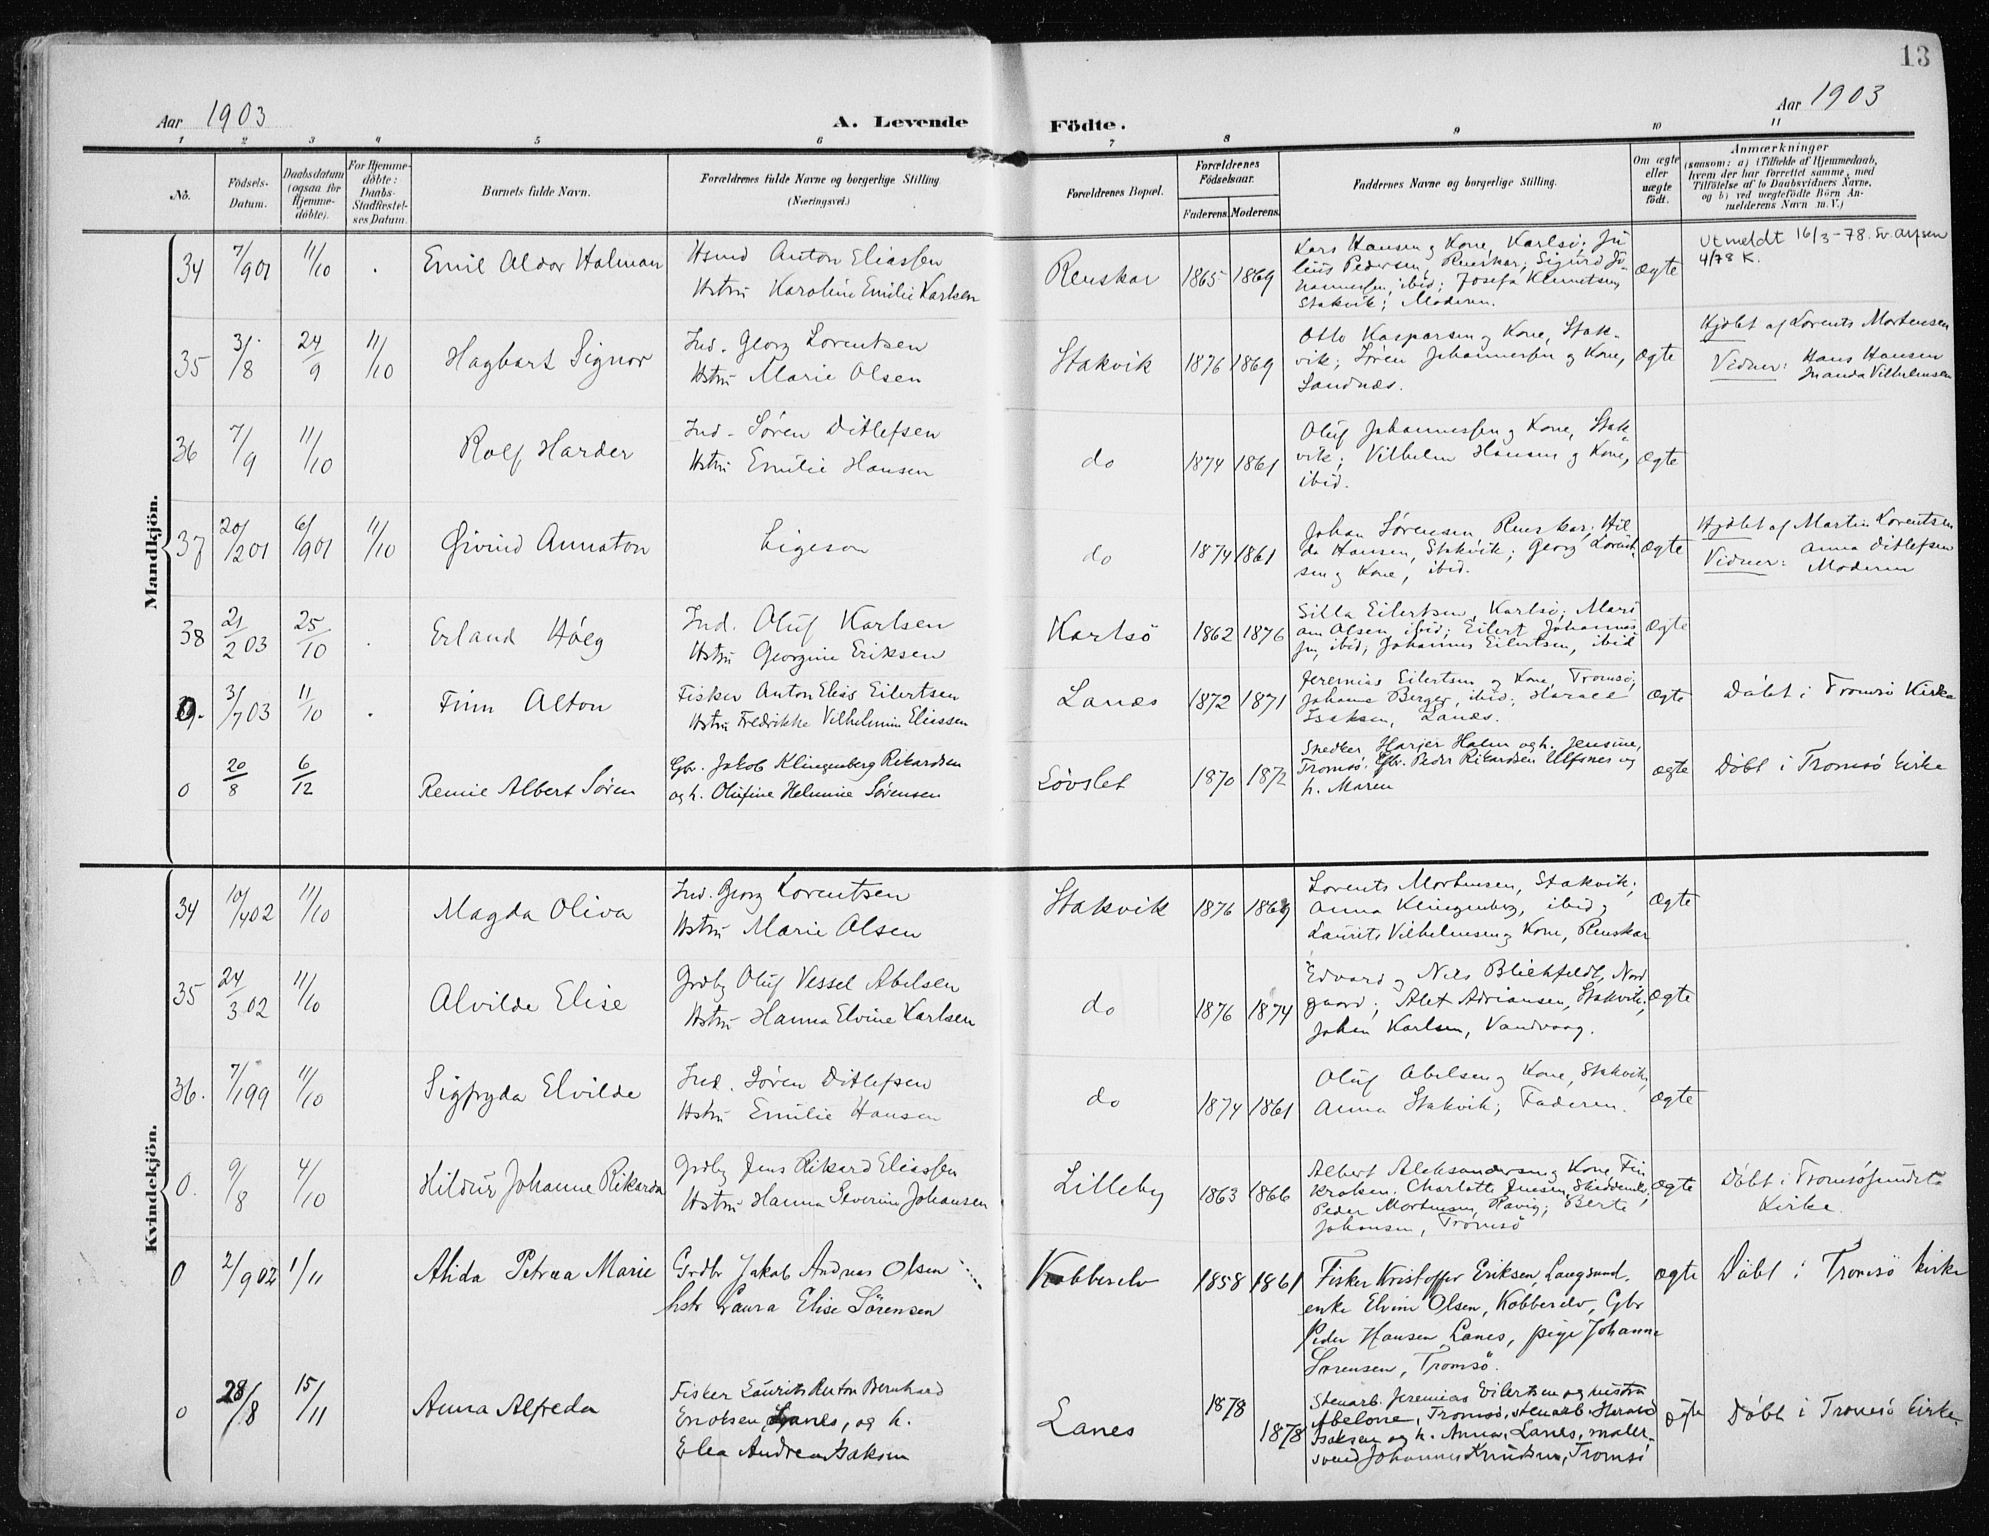 13
Aar 1903
A. Levende Födte.
Aar 1903
1 2 3 4 5 6 7 8 9 10 11
No.
Födsels-
Datum.
Daabsdatum
(ogsaa for
Hjemme-
döbte).
For Hjemme-
döbte:
Daabs-
Stadfæstel-
ses Datum.
Barnets fulde Navn.
Forældrenes fulde Navne og borgerlige Stilling
(Næringsvei.)
Forældrenes Bopæl.
Forældrenes
Födselsaar.
Faderens. Moderens.
Faddernes Navne og borgerlige Stilling.
Om ægte
eller
uægte
födt.
Anmærkninger
(saasom: a) i Tilfælde af Hjemmedaab,
hvem der har forrettet samme, med
Tilföielse af to Daabsvidners Navne,
og b) ved uægtefödte Börn An-
melderens Navn m. V.)
Mandkjön.
34 7/901 11/10 . Emil Aldor Halman
Hsmd Anton Eliassen
Hstru Karoline Emilie Karlsen
Renskar 1865 1869
Lars Hansen og Kone, Karlsö; Ju-
lius Pedersen, Renskar; Sigurd Jo-
hannessen, ibid; Josefa Klemetsen,
Stakvik; Moderen.
ægte
Utmeldt 16/3-78. Sv. Arpsen
4/78 K.
35 31/8 24/9 11/10 Hagbart Signor
Ind. Georg Lorentsen
Hstru Marie Olsen
Stakvik 1876 1869
Otto Kaspersen og Kone, Stak-
vik; Sören Johannessen og Kone,
Sandnæs.
ægte
Hjdbt af Lorents Mortensen
Vidner: Hans Hansen
Inanda Vilhelmsen
36 7/9 11/10 Rolf Harder
Ind. Sören Ditlefsen
Hstru Emilie Hansen
do 1874 1861
Oluf Johannessen og Kone, Stak-
vik; Vilhelm Hansen og Kone,
ibid.
ægte
37 20/201 6/901 11/10 Øivind Annaton
Ligeson
do 1874 1861
Johan Sørensen, Renskar; Hil-
da Hansen, Stakvik; Georg Lorent-
sen og Kone, ibid.
ægte
Hjdbt af Martin Lorentsen
Vidner: Anna Ditlefsen
Moderen
38 21/2 03 25/10 . Erland Höeg
Ind. Oluf Karlsen
Hstru Georgine Eriksen
Karlsö 1862 1876
Silla Eilertsen, Karlsö; Mari-
am Olsen, ibid; Eilert Johannes-
sen, ibid; Johannes Eilertsen, ibid
ægte
0. 31/7 03 11/10 . Finn Alton
Fisker Anton Elias Eilertsen
Hstru Fredrikke Vilhelmine Eliassen
Lanæs 1872 1871
Jeremias Eilertsen og Kone, Tromsö;
Johanne Berger, ibid; Harald
Isaksen, Lanæs.
ægte
Döbt i Tromsö Kirke
0 20/8 6/12 Remie Albert Sören
Gbr. Jakob Klingenberg Rikardsen
og h. Olufine Helmine Sörensen
Lövslet 1870 1872
Snedker Harjer Holm og h. Jensine,
Tromsö. Gbr. Peder Rikardsen Ulfsnes og
h. Maren
ægte
Döbt i Tromsö kirke
Kvindekjön.
34 10/402 11/10 Magda Oliva
Ind. Georg Lorentsen
Hstru Marie Olsen
Stakvik 1876 1869
Lorents Mortensen, Stakvik;
Anna Klingenberg, ibid;
Laurits Vilhelmsen og Kone, Renskar
ægte
35 24/3 02 11/10 Alvilde Elise
Grdbr Oluf Vessel Abelsen
Hstru Hanna Elvine Karlsen
do 1876 1874
Edvard og Nils Blichfeldt, Nord-
gaard; Alet Adriansen, Stakvik;
Johan Karlsen, Vandvaag.
ægte
36. 7/199 11/10 Sigfryda Elvilde
Ind. Sören Ditlefsen
Hstru Emilie Hansen
do 1874 1861
Oluf Abelsen og Kone, Stakvik;
Anna Stakvik; Faderen.
ægte
0. 9/8 4/10 Hildur Johanne Rikarda
Grdbr Jens Rikard Eliassen
Hstru Hanna Severine Johansen
Lilleby 1863 1866
Albert Aleksandersen og Kone, Fin-
kroken; Charlotte Jensen, Skiddenelv;
Peder Mortensen, Ravig; Berte
Johansen, Tromsö
ægte
Döbt i Tromsösundets
Kirke.
0 2/902 1/11 Alida Petræa Marie
Grdbr Jakob Andreas Olsen
hstr Laura Elise Sörensen
Kobberelv 1858 1861
Fisker Kristoffer Eriksen, Langsund,
enke Elvine Olsen, Kobberelv, Gbr
Peder Hansen Lanes, pige Johanne
Sörensen, Tromsö.
ægte
Döbt i Tromsö kirke
0 28/8 15/11 Anna Alfreda
Fisker Laurits Anton Bernhard
Eriksen Lanes, og h.
Elea Andrea Isaksen
Lanes 1878 1878
Stenarb. Jeremias Eilertsen og hustru
Abelone, Tromsö, stenarb. Harald
Isaksen og h. Anna, Lanes, maler-
svend Johannes Knudsen, Tromsö
ægte
Döbt i Tromsö kirke